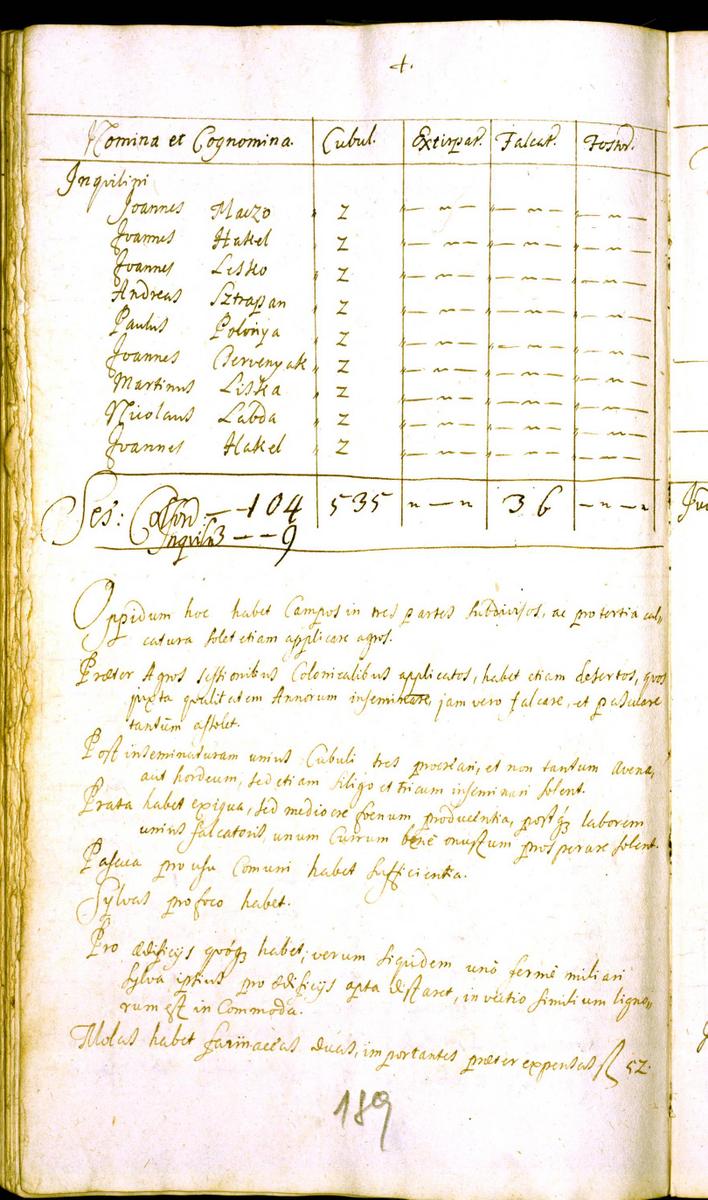 4.
Nomina et Cognomina. Cubul. Extirpat. Falcat. Fosor.
Inquilini
Joannes Maczo " 2 "—"— "—"— "—"—
Joannes Hakel " 2 "—"— "—"— "—"—
Joannes Lisko " 2 "—"— "—"— "—"—
Andreas Sztrapan " 2 "—"— "—"— "—"—
Paulus Polonya " 2 "—"— "—"— "—"—
Joannes Cservenyak " 2 "—"— "—"— "—"—
Martinus Liska " 2 "—"— "—"— "—"—
Nicolaus Labda " 2 "—"— "—"— "—"—
Joannes Hakel " 2 "—"— "—"— "—"—
Ses: — 104 535 "—" 36 —"—"
— — 9
Oppidum hoc habet Campos in tres partes subdivisos, ac pro tertia cal=
catura solet etiam applicare agros.
Præter Agros sessionibus Colonicalibus applicatos, habet etiam desertos, quos
juxta qualitatem Annorum inseminare, jam vero falcare, et pascuare
tantum assolet.
Post inseminaturam unius Cubuli tres procreari, et non tantum avena,
aut hordeum, sed etiam siligo et triticum inseminari solent.
Prata habet exigua, sed mediocre foenum producentia, postq3 laborem
unius falcatoris, unum Currum bene onustum prosperare solent.
Pascua pro usu Comuni habet sufficientia.
Sylvas pro foco habet.
Pro ædificijs quóq3 habet, verum siquidem unó fermé miliari
sylva ipsius pro ædificijs apta distaret, in vectio similium ligno=
rum est in Commoda.
Molas habet farinaceas duas, importantes præter expensas fl 52.
189